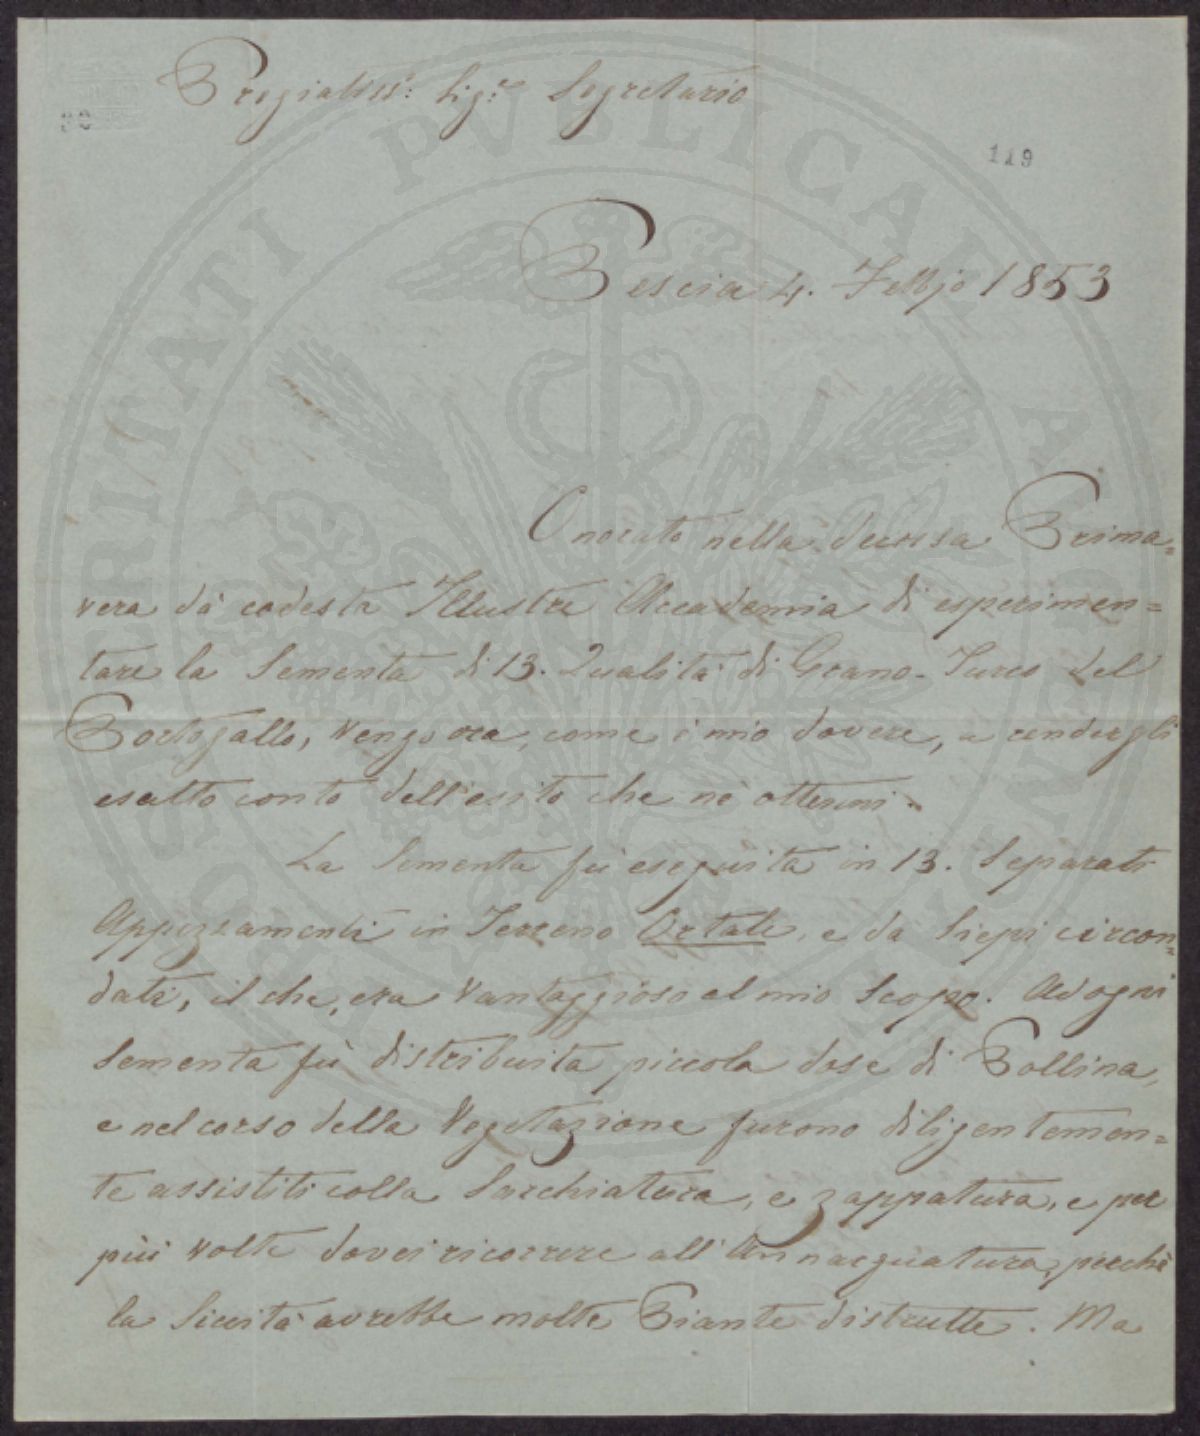 Pregiatiss: Sig.re Segretario
119
Pescia 4. Febbjo 1853
Onorato nella decorsa Prima=
vera dà codesta Illustre Accademia di esperimen=
tare la Sementa di 13. Qualità di Grano-Turco del
Portogallo, vengo ora, come è mio dovere, a rendergli
esatto conto dell'esito che nè ottenni.
La Sementa fù eseguita in 13. Separati
Appezzamenti in Terreno Ortale, e da Siepi circon=
dati, il che, era vantaggioso al mio Scopo. Ad ogni
Sementa fù distribuita piccola dose di Pollina,
e nel corso della Vegetazione furono diligentemen=
te assistiti colla Sarchiatura, e zappatura, e per
più volte dovei ricorrere all'Annacquatura, perchè
la Siccità avrebbe molte Piante distrutte. Ma
PROSPERITATI PVBLICAE AVGENDAE